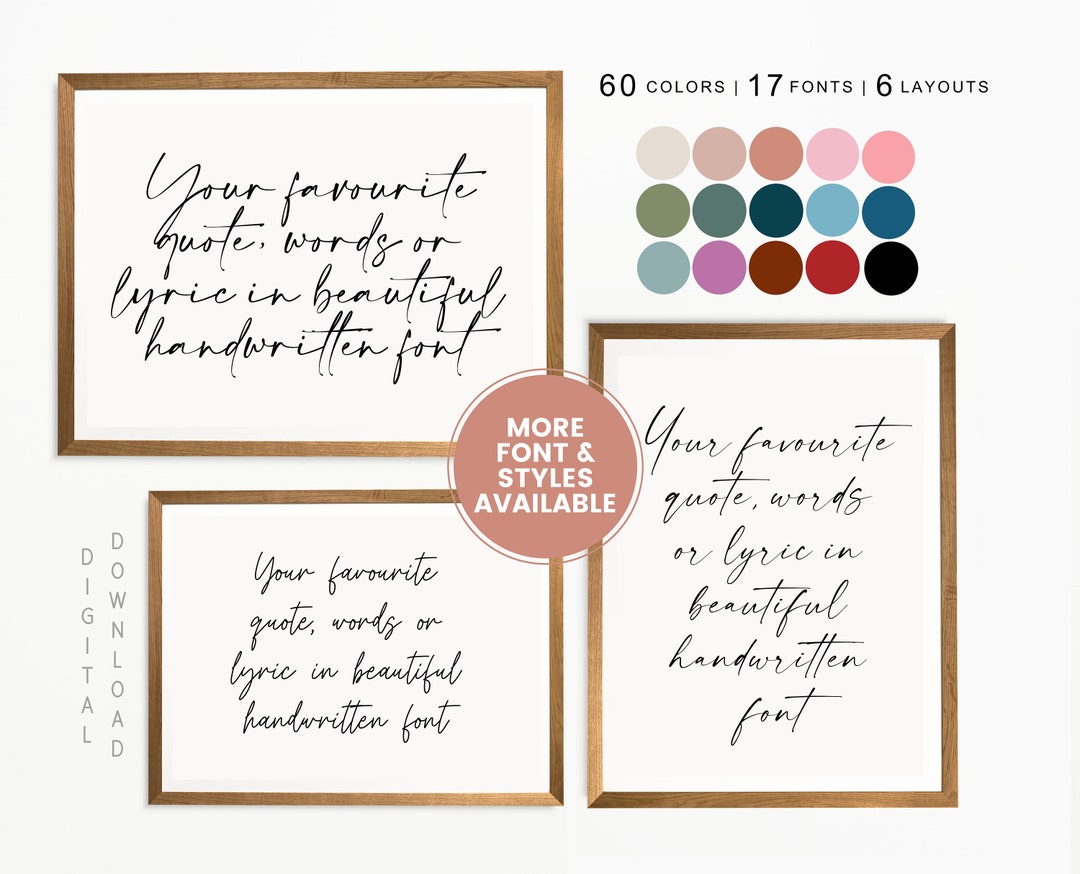 60 COLORS | 17 FONTS | 6 LAYOUTS
Your favourite
quote, words or
lyric in beautiful
handwritten font
MORE
FONT &
STYLES
AVAILABLE
Your favourite
quote, words
or lyric in
beautiful
handwritten
font
DIGITAL
DOWNLOAD
Your favourite
quote, words or
lyric in beautiful
handwritten font